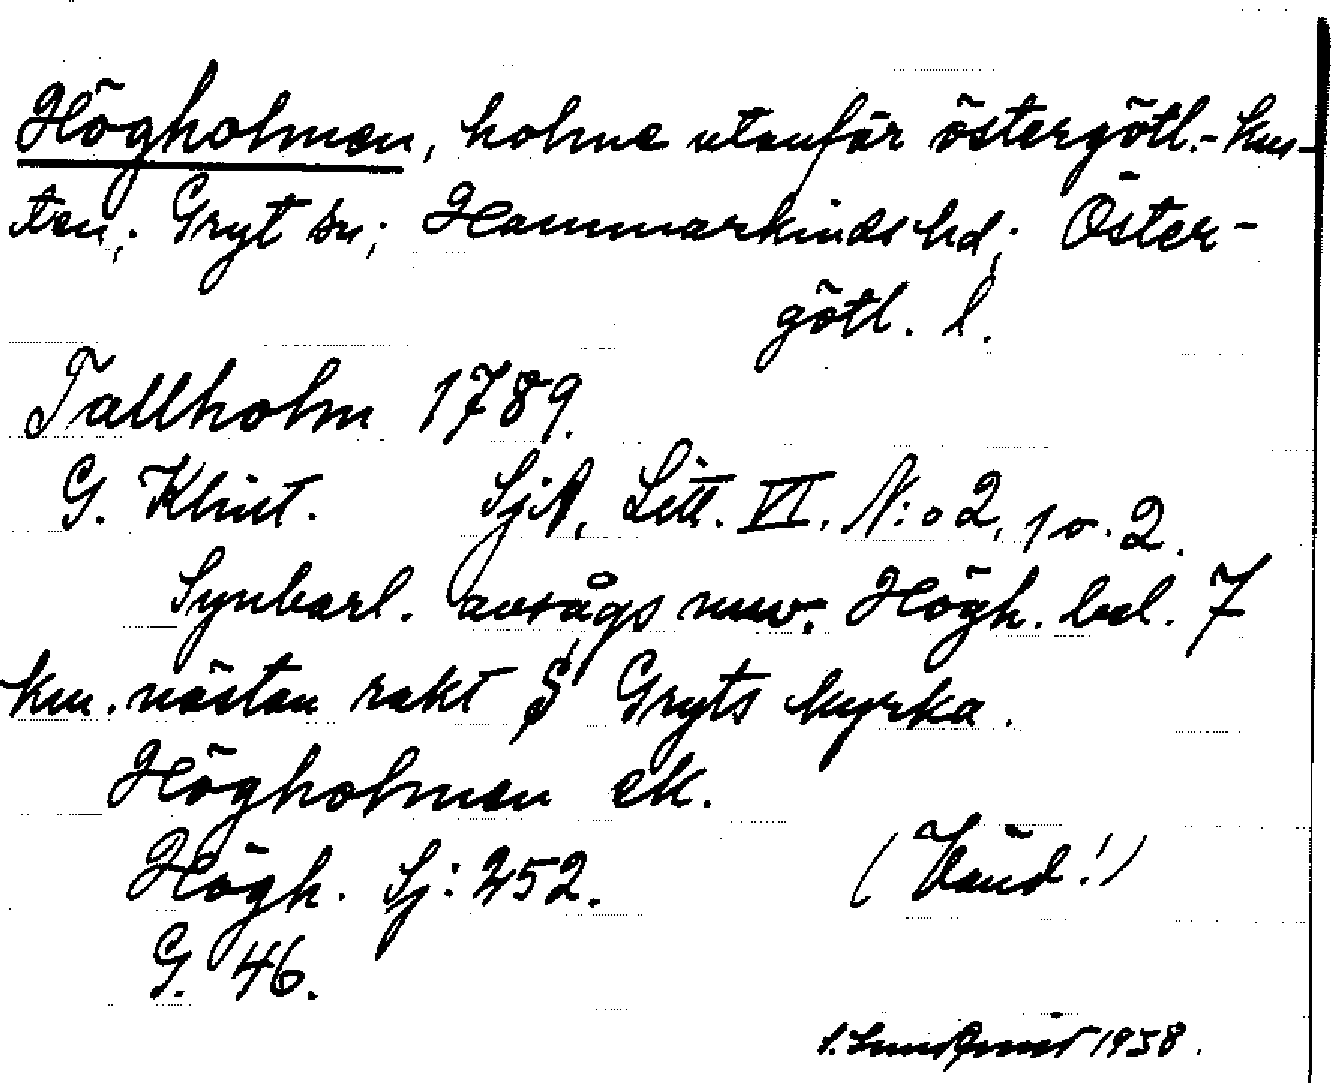 Högholmen, holme utanför östergötl.-kus-
ten; Gryt sn; Hammarkinds hd; Öster-
götl. l.
Tallholm 1789.
G. Klint. SjA, Litt. VI. N:o 2, 1 o. 2.
Synbarl. avsågs nuv. Högh. bel. 7
km. nästan rakt S Gryts kyrka.
Högholmen ek.
Högh. Sj: 252.
(Vänd!)
G. 46.
S. Lundqvist 1938.